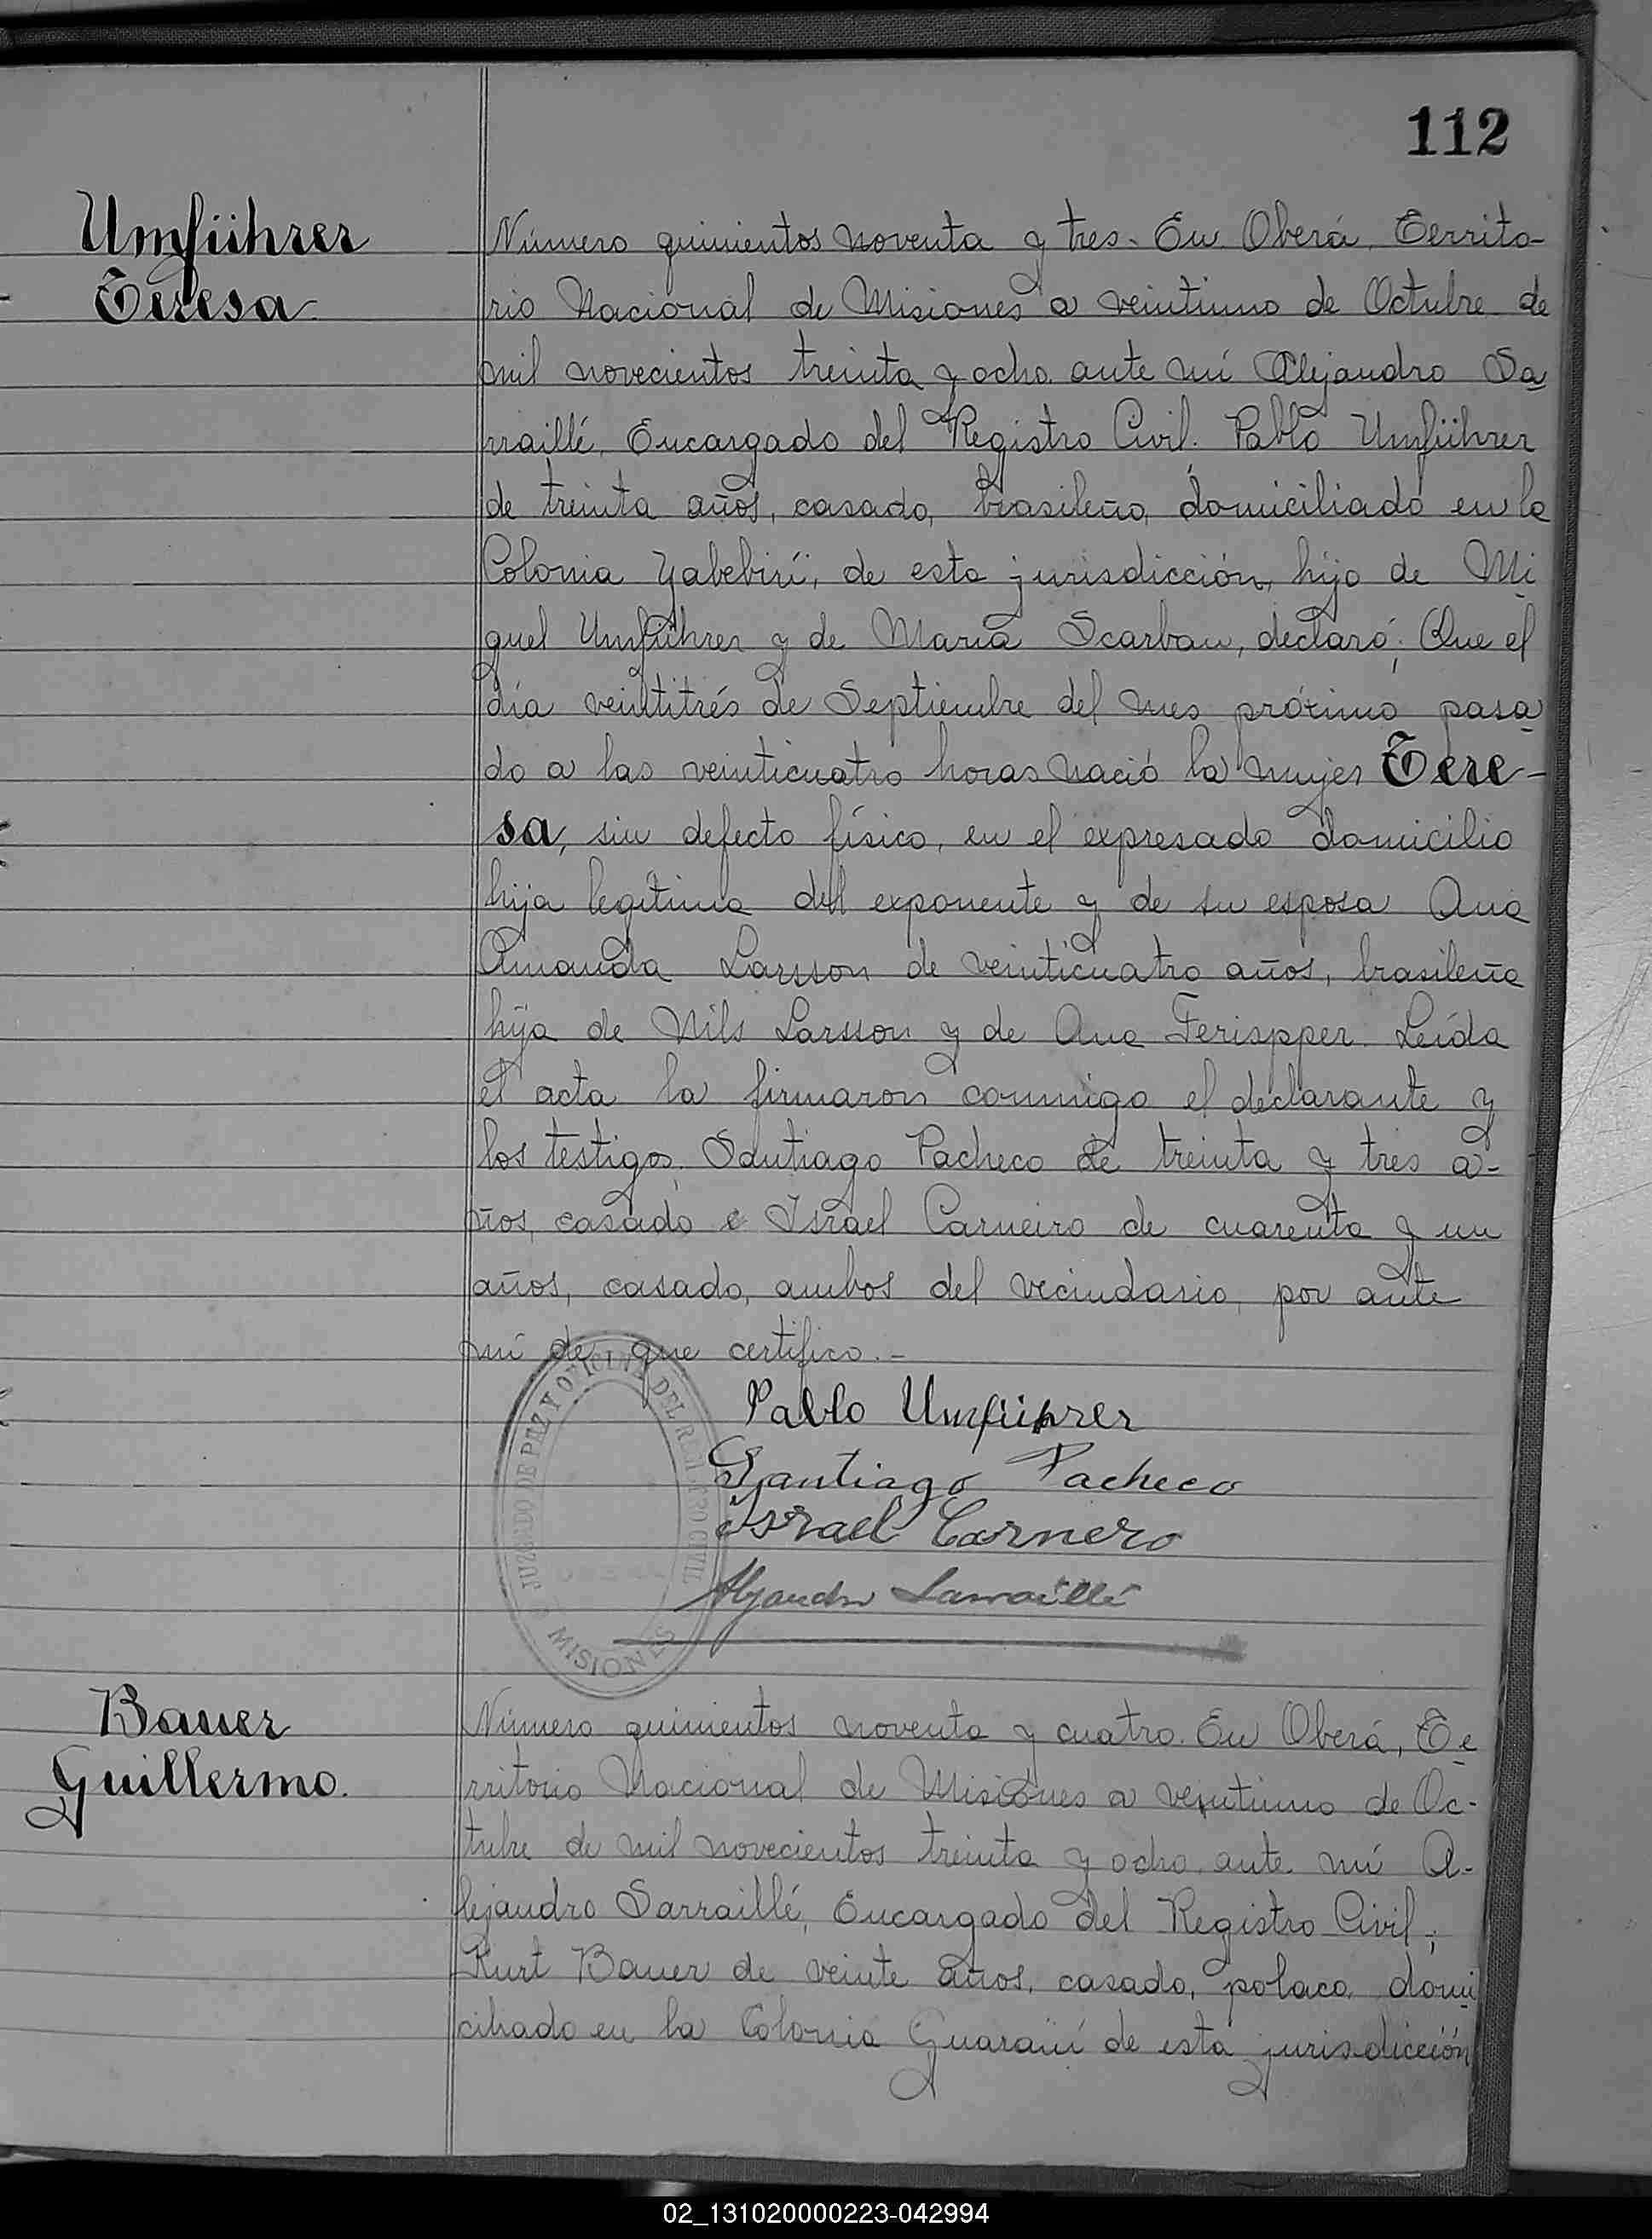 112
Umführer
Teresa
Número quinientos noventa y tres. En Oberá, Territo-
rio Nacional de Misiones a veintiuno de Octubre de
mil novecientos treinta y ocho, ante mí Alejandro Sa
rraillé, Encargado del Registro Civil. Pablo Umführer
de treinta años, casado, brasileño, domiciliado en la
Colonia Yabebirí, de esta jurisdicción, hijo de Mi
guel Umführer y de María Scarban, declaró; Que el
día veintitrés de Septiembre del mes próximo pasa
do a las veinticuatro horas nació la mujer Tere-
sa, sin defecto físico, en el expresado domicilio
hija legítima del exponente y de su esposa Ana
Amanda Larsson de veinticuatro años, brasileña
hija de Nils Larsson y de Ana Ferispper. Leída
el acta la firmaron conmigo el declarante y
los testigos, Santiago Pacheco de treinta y tres a-
ños, casado e Israel Carneiro de cuarenta y un
años, casado, ambos del vecindario, por ante
mí de que certifico.-
Pablo Umführer
Santiago Pacheco
Israel Carnero
Alejandro Sarraillé
JUZGADO DE PAZ Y OFICINA DEL REGISTRO CIVIL
MISIONES
Bauer
Guillermo.
Número quinientos noventa y cuatro. En Oberá, Te
rritorio Nacional de Misiones a veintiuno de Oc-
tubre de mil novecientos treinta y ocho, ante mí A-
lejandro Sarraillé, Encargado del Registro Civil;
Kurt Bauer de veinte años, casado, polaco, domi
ciliado en la Colonia Guaraní de esta jurisdicción
02_131020000223-042994